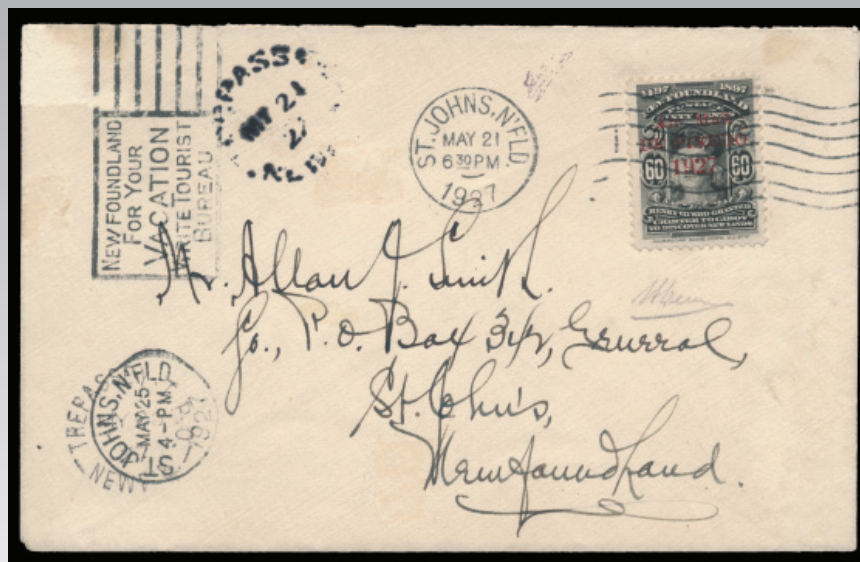 NEWFOUNDLAND
FOR YOUR
VACATION
WRITE TOURIST
BUREAU
MAY 21
27
ST. JOHNS, N'FLD.
MAY 21
6 30 PM
1927
1497 1897
NEWFOUNDLAND
1927
60 60
HENRY VII WHO GRANTED
CHARTER TO CABOT
TO DISCOVER NEW LANDS
Mr. Allan J. Smith.
Co., P.O. Box
St. John's,
Newfoundland.
ST. JOHNS, N'FLD.
MAY 25
4-PM
1927